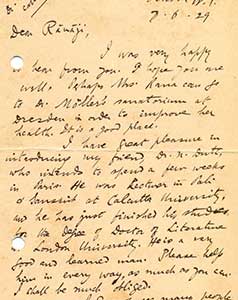 7.6.29
Dear Rānāji,
I was very happy
to hear from you. I hope you are
well. Perhaps Mrs. Rana can go
to Dr. Möller's sanatorium at
Dresden in order to improve her
health. It is a good place.
I have great pleasure in
introducing my friend, Dr. N. Dutt,
who intends to spend a few weeks
in Paris. He was Lecturer in Pali
& Sanskrit at Calcutta University,
and he has just finished his studies
for the degree of Doctor of Literature
of London University. He is a very
good and learned man. Please help
him in every way, as much as you can.
I shall be much obliged.
many people